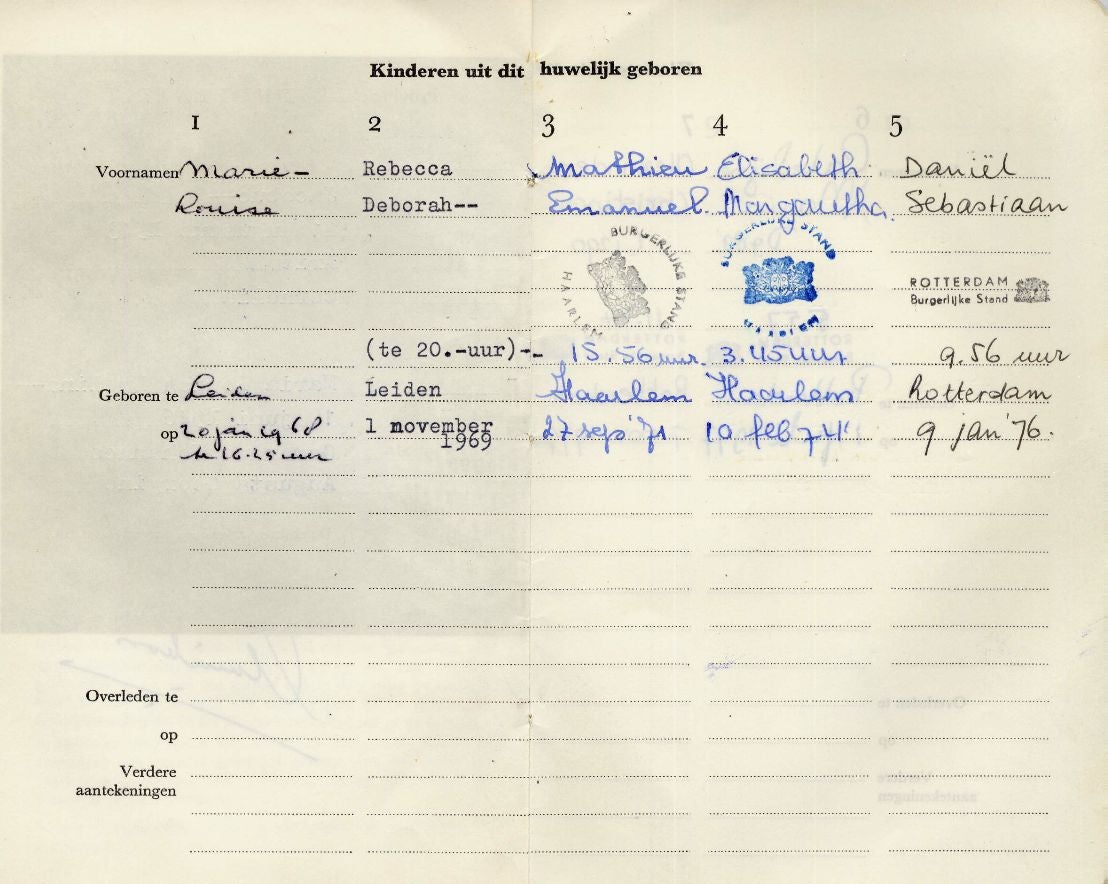 Kinderen uit dit huwelijk geboren
1 2 3 4 5
Voornamen Marie- Rebecca Mathieu Elisabeth Daniël
Louise Deborah-- Emanuel Margaretha Sebastiaan
BURGERLIJKE STAND HAARLEM
BURGERLIJKE STAND HAARLEM
ROTTERDAM
Burgerlijke Stand
(te 20.-uur)-- 15.56 uur. 3.45 uur 9.56 uur
Geboren te Leiden Leiden Haarlem Haarlem Rotterdam
op 20 jan 1968 1 november 27 sep '71 10 feb 74 9 jan '76.
1969
te 16.25 uur
Overleden te
op
Verdere
aantekeningen